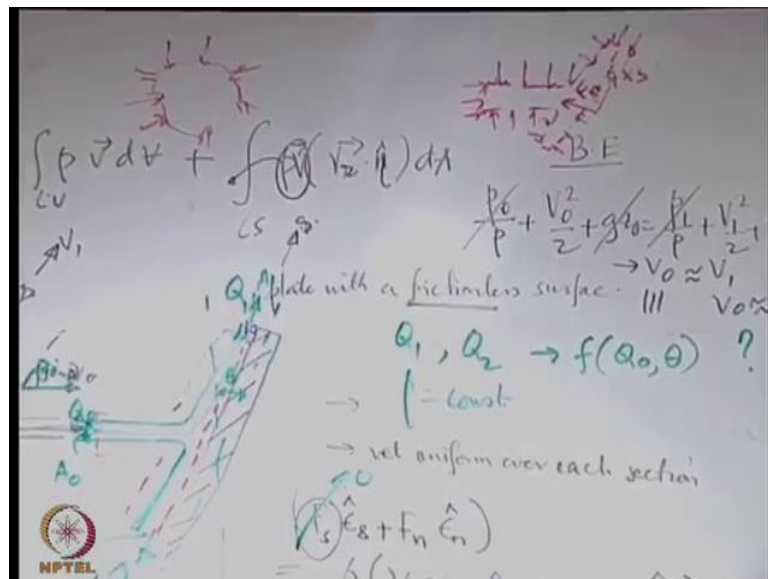 ∫ ρ v⃗ dV + ∫ ρv⃗ (v⃗r · η̂) dA
CV
CS
B.E
p0/ρ + V0²/2 + gz0 = p1/ρ + V1²/2
→ V0 ≈ V1
||| V0 ≈
V1
s
1 Q1 plate with a frictionless surfac.
Q1, Q2 → f(Q0, θ) ?
→ ρ = const
→ vel uniform over each section
Q0
A0
0
Fs ε̂s + Fn ε̂n)
=
NPTEL